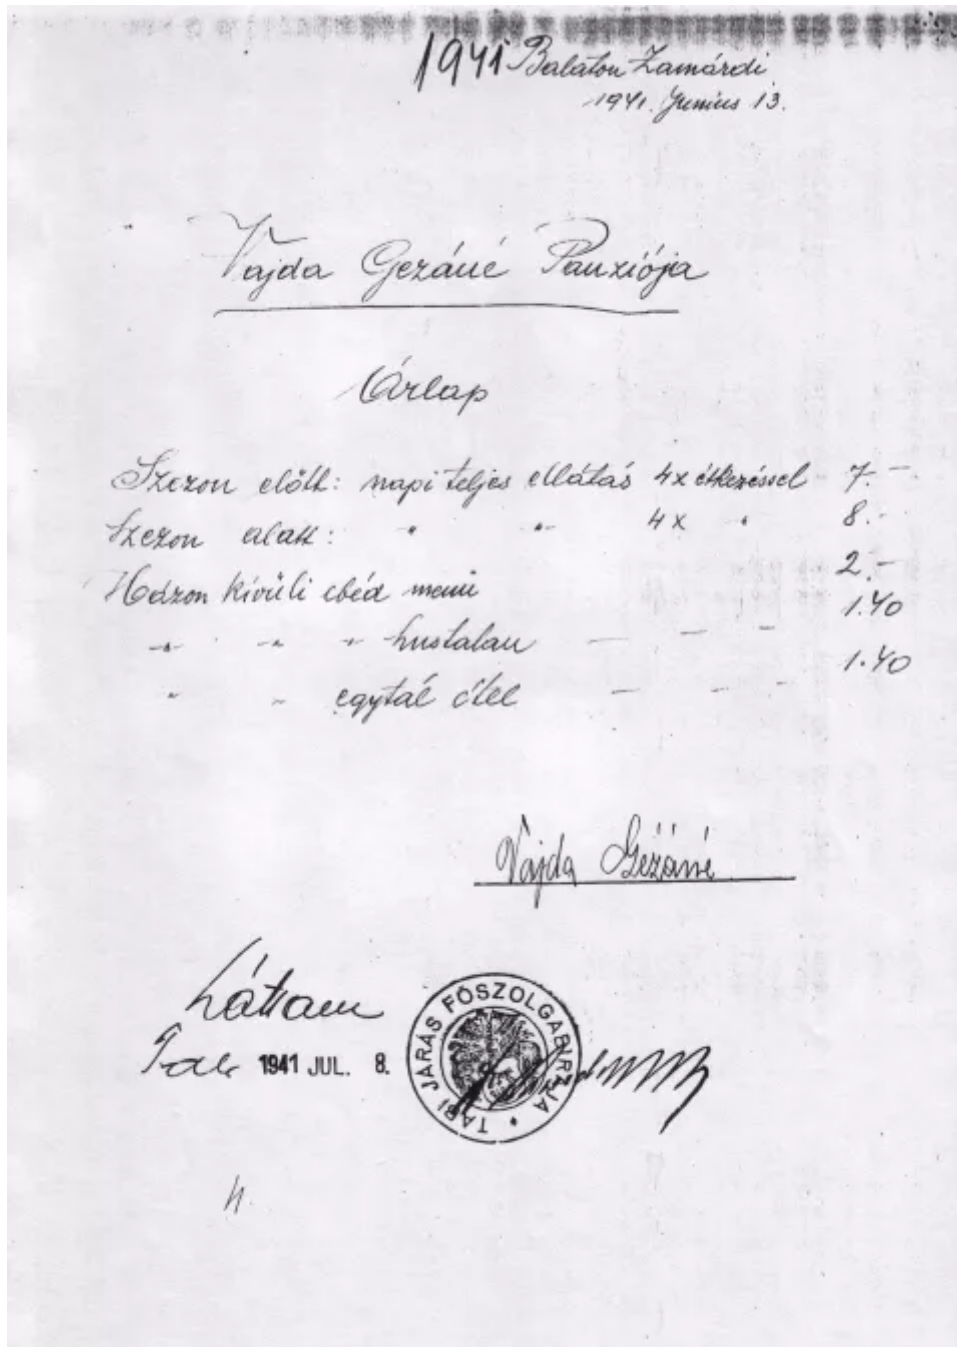 1941 Balaton Zamárdi
1941. Junius 13.
Vajda Gezáné Panziója
Árlap
Szezon előtt: napi teljes ellátás 4x étkezéssel 7.-
Szezon alatt: " " 4x " 8.-
Házon kívüli ebéd menü 2.-
" " " hustalan - - - 1.40
" " egytál étel - - - 1.40
Vajda Gézáné
Láttam
Tab, 1941 JUL. 8.
TABI JÁRÁS FŐSZOLGABIRÁJA